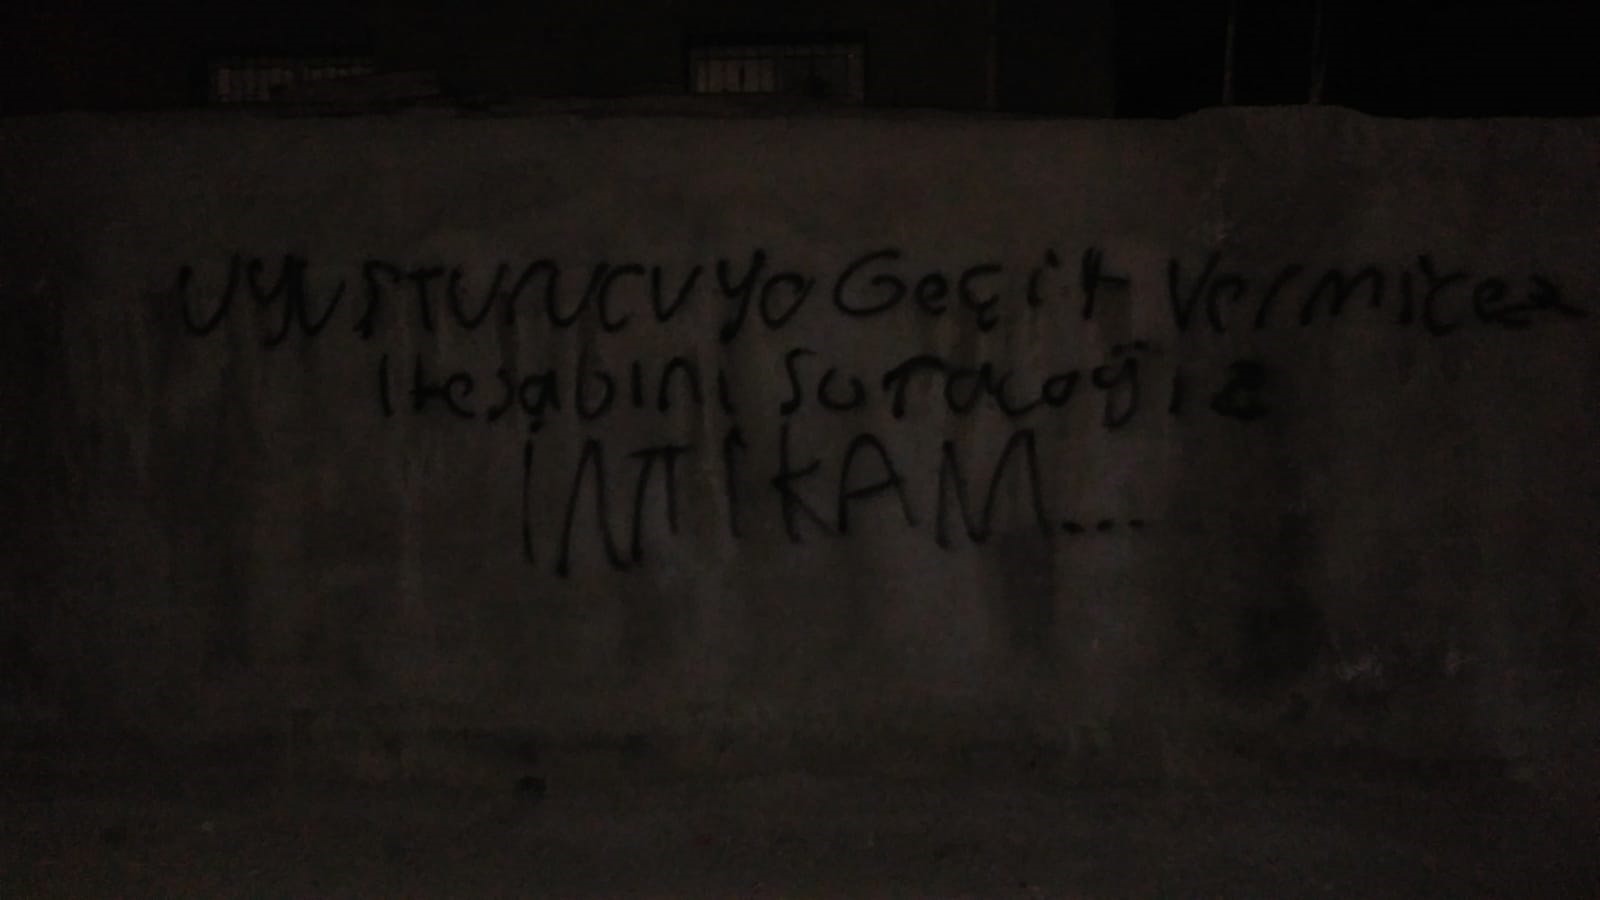 UYUŞTURUCUYA Geçit Vermicez
Hesabını Soracağız
İNTİKAM...